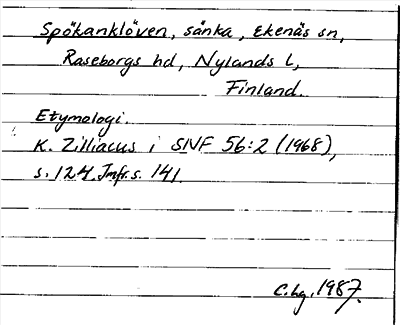 Spökanklöven, sänka, Ekenäs sn,
Raseborgs hd, Nylands l,
Finland.
Etymologi.
K. Zilliacus i SNF 56:2 (1968),
s. 124. Jmfr. s. 141
C.hg. 1987.